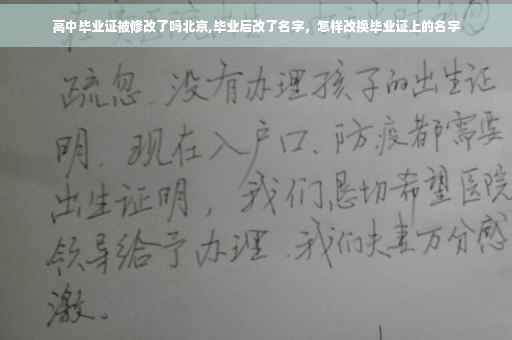 高中毕业证被修改了吗北京,毕业后改了名字，怎样改换毕业证上的名字
疏忽、没有办理孩子的出生证
明、现在入户口、防疫都需要
出生证明，我们恳切希望医院
领导给予办理、我们夫妻万分感
激。